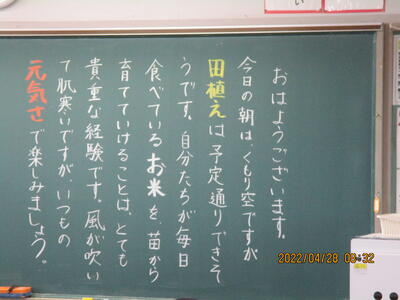 おはようございます。
今日の朝は、くもり空ですが
田植えは予定通りできそ
うです。自分たちが毎日
食べているお米を、苗から
育てていけることは、とても
貴重な経験です。風が吹い
て肌寒いですが、いつもの
元気さで楽しみましょう。
2022/04/28 08:32